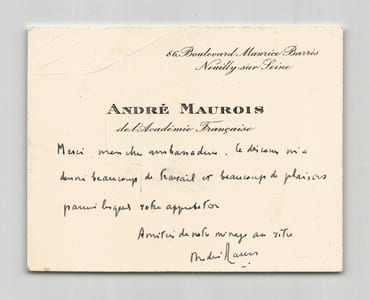 86, Boulevard Maurice Barrès
Neuilly-sur-Seine
ANDRÉ MAUROIS
de l'Académie Française
Merci, mon cher ambassadeur. Le discours m'a
donné beaucoup de travail et beaucoup de plaisirs
parmi lesquels votre approbation
Amitiés de notre ménage au vôtre
André Maurois